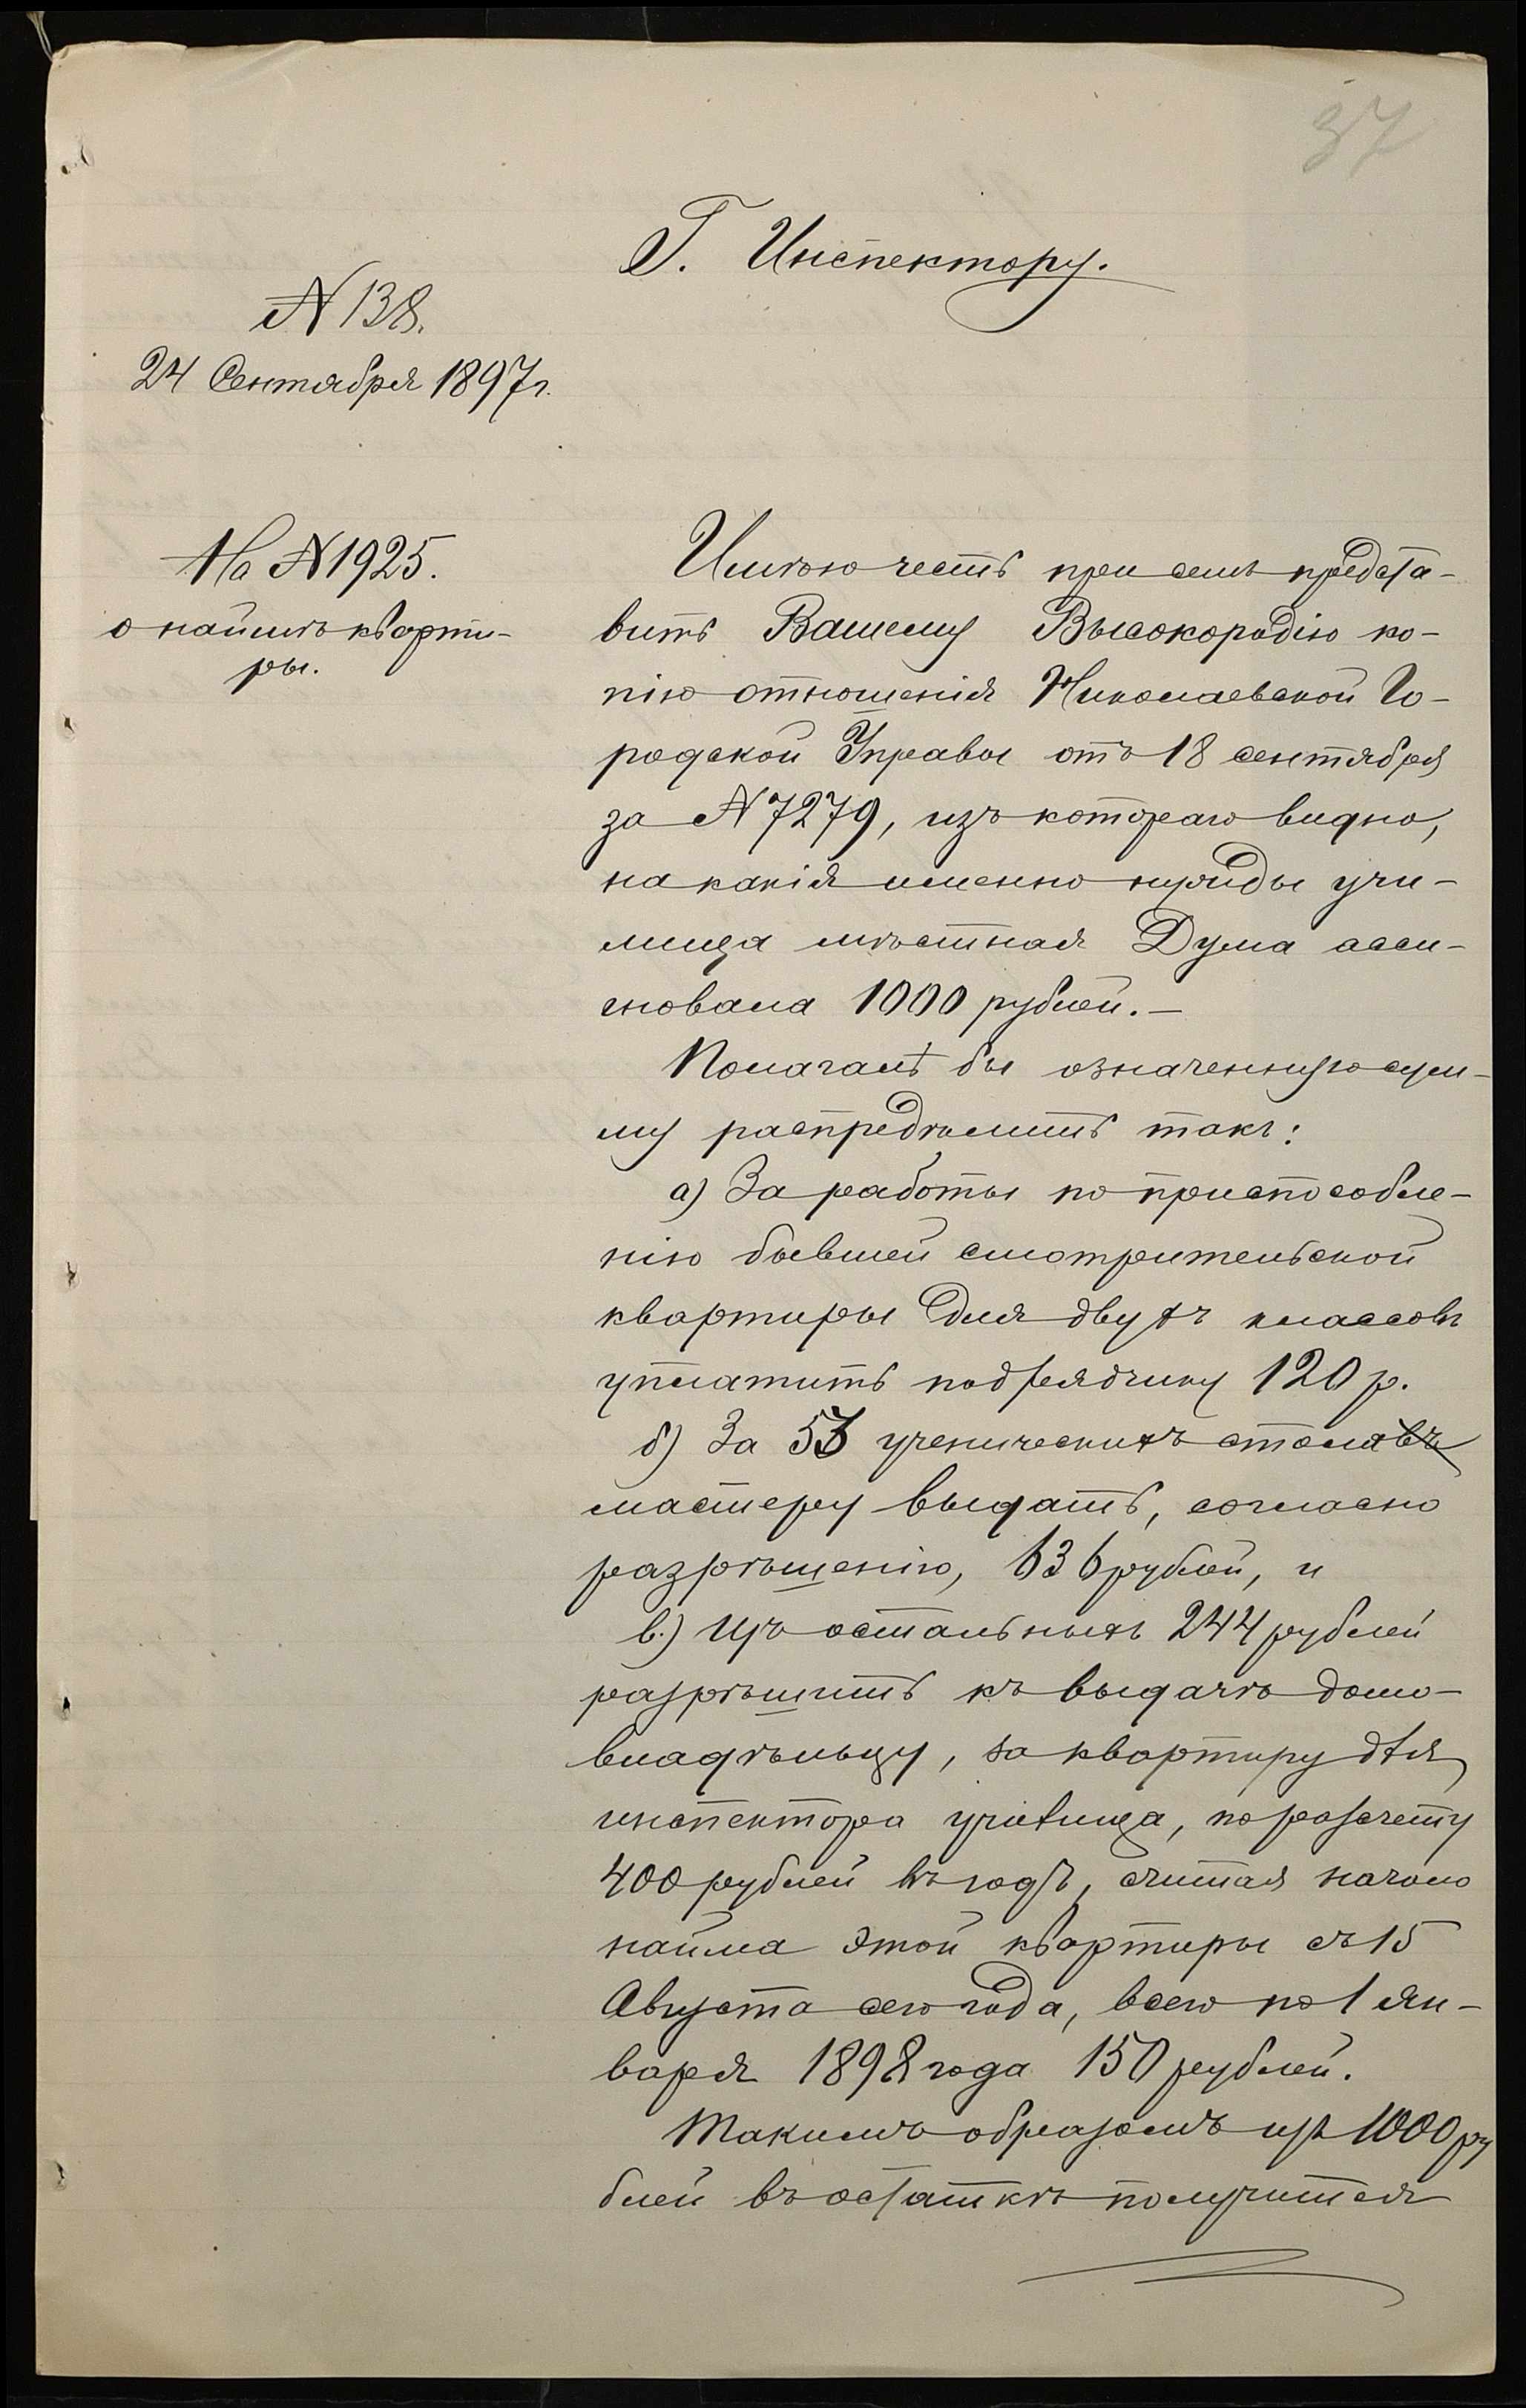 37
Г. Инспектору.
№ 138.
24 Сентября 1897 г.
На № 1925.
о наймѣ кварти-
ры.
Имѣю честь при семъ предста-
вить Вашему Высокородію ко-
пію отношенія Николаевской Го-
родской Управы отъ 18 сентября
за № 7279, изъ котораго видно,
на какія именно нужды учи-
лища мѣстная Дума асси-
гновала 1000 рублей. —
Полагалъ бы означенную сум-
му распредѣлить такъ:
а) За работы по приспособле-
нію бывшей смотрительской
квартиры для двухъ классовъ
уплатить подрядчику 120 р.
б) За 53 ученическихъ стола
мастеру выдать, согласно
разрѣшенію, 636 рублей, и
в.) Изъ остальныхъ 244 рублей
разрѣшить къ выдачѣ домо-
владѣльцу, за квартиру для
инспектора училища, по разсчету
400 рублей въ годъ, считая начало
найма этой квартиры съ 15
Августа сего года, всего по 1 ян-
варя 1898 года 150 рублей.
Такимъ образомъ изъ 1000 ру
блей въ остаткѣ получится